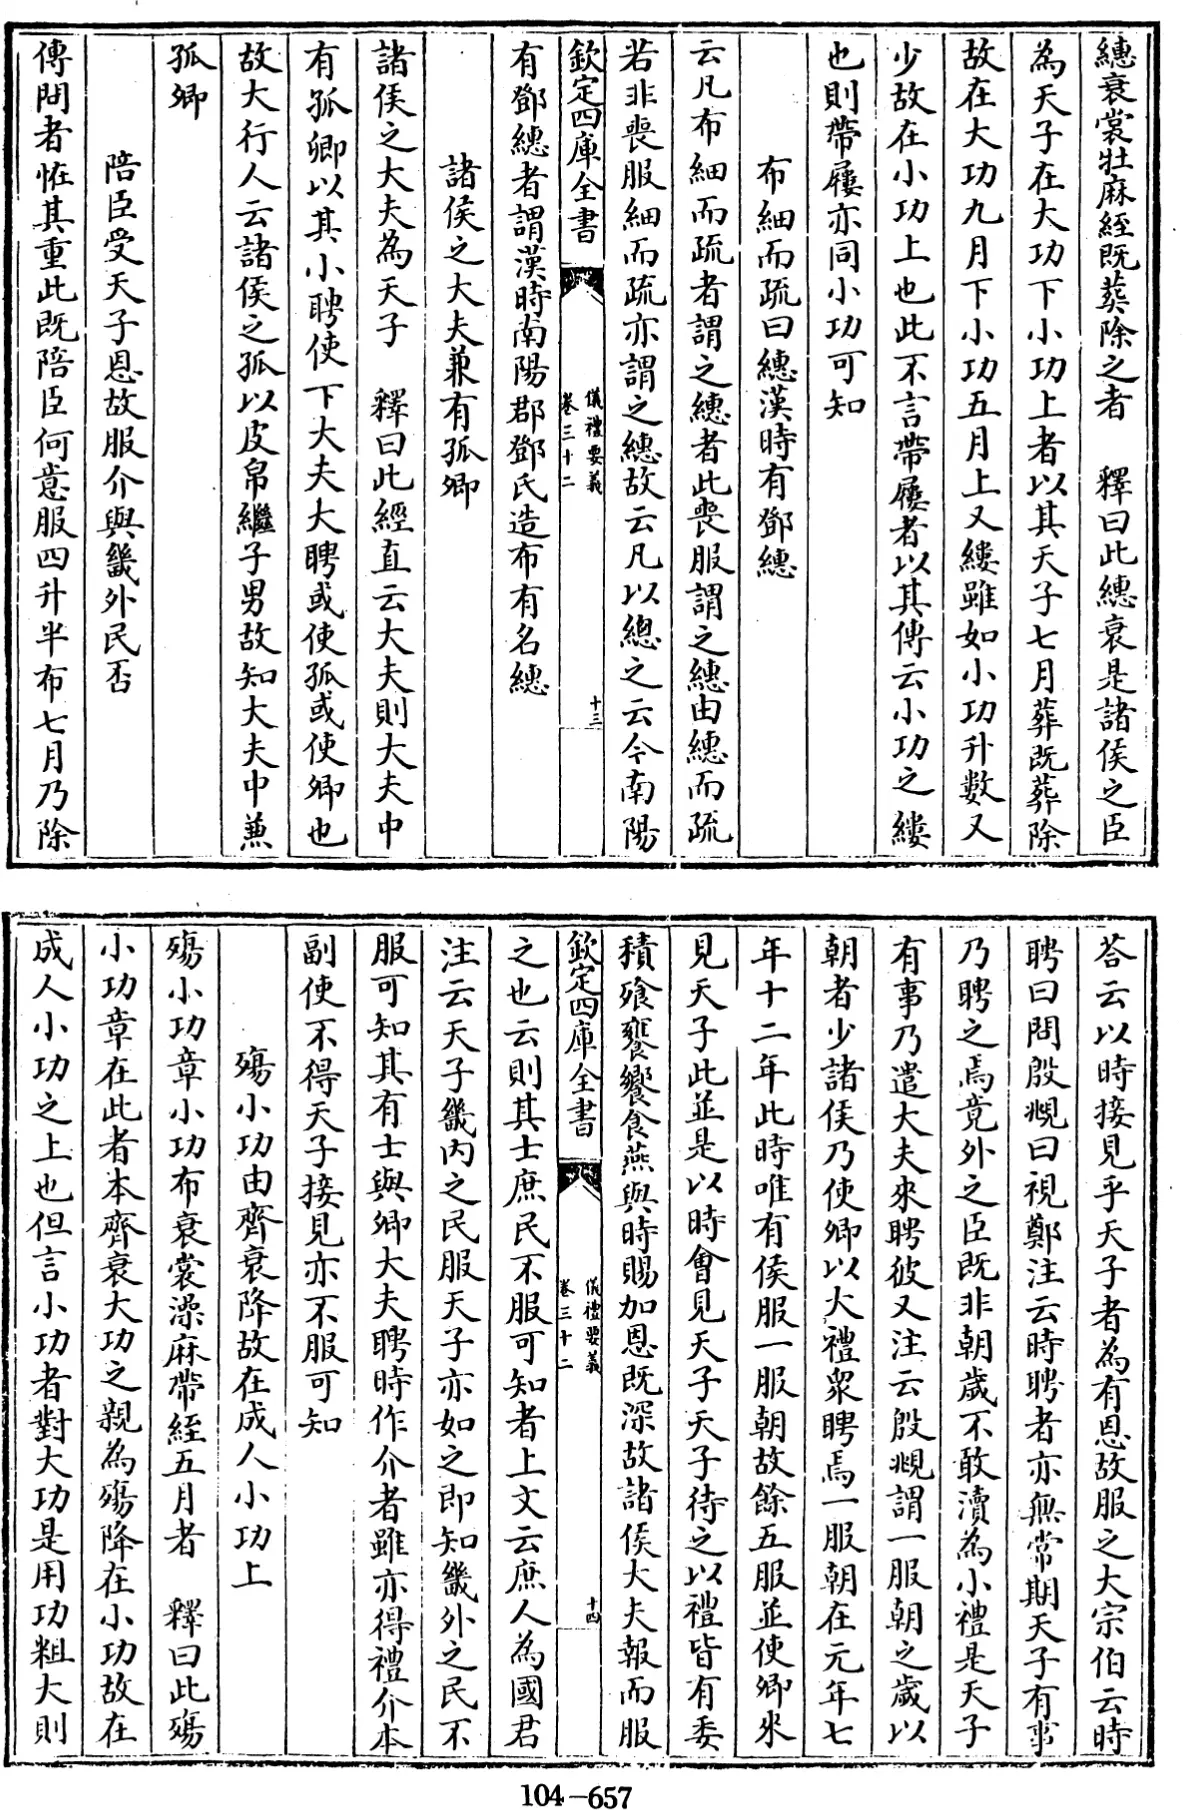 繐衰裳牡麻絰既葬除之者　釋曰此繐衰是諸侯之臣
為天子在大功下小功上者以其天子七月葬既葬除
故在大功九月下小功五月上又縷雖如小功升數又
少故在小功上也此不言帶屨者以其傳云小功之縷
也則帶屨亦同小功可知
布細而疏曰繐漢時有鄧繐
云凡布細而疏者謂之繐者此喪服謂之繐由繐而疏
若非喪服細而疏亦謂之繐故云凡以總之云今南陽
欽定四庫全書
儀禮要義
卷三十二
十三
有鄧繐者謂漢時南陽郡鄧氏造布有名繐
諸侯之大夫兼有孤卿
諸侯之大夫為天子　釋曰此經直云大夫則大夫中
有孤卿以其小聘使下大夫大聘或使孤或使卿也
故大行人云諸侯之孤以皮帛繼子男故知大夫中兼
孤卿
陪臣受天子恩故服介與畿外民否
傳問者恠其重此既陪臣何意服四升半布七月乃除
荅云以時接見乎天子者為有恩故服之大宗伯云時
聘曰問殷覜曰視鄭注云時聘者亦無常期天子有事
乃聘之焉竟外之臣既非朝歲不敢瀆為小禮是天子
有事乃遣大夫來聘彼又注云殷覜謂一服朝之歲以
朝者少諸侯乃使卿以大禮眾聘焉一服朝在元年七
年十二年此時唯有侯服一服朝故餘五服並使卿來
見天子此並是以時會見天子天子待之以禮皆有委
積飱饔饗食燕與時賜加恩既深故諸侯大夫報而服
欽定四庫全書
儀禮要義
卷三十二
十四
之也云則其士庶民不服可知者上文云庶人為國君
注云天子畿内之民服天子亦如之即知畿外之民不
服可知其有士與卿大夫聘時作介者雖亦得禮介本
副使不得天子接見亦不服可知
殤小功由齊衰降故在成人小功上
殤小功章小功布衰裳澡麻帶絰五月者　釋曰此殤
小功章在此者本齊衰大功之親為殤降在小功故在
成人小功之上也但言小功者對大功是用功粗大則
104-657